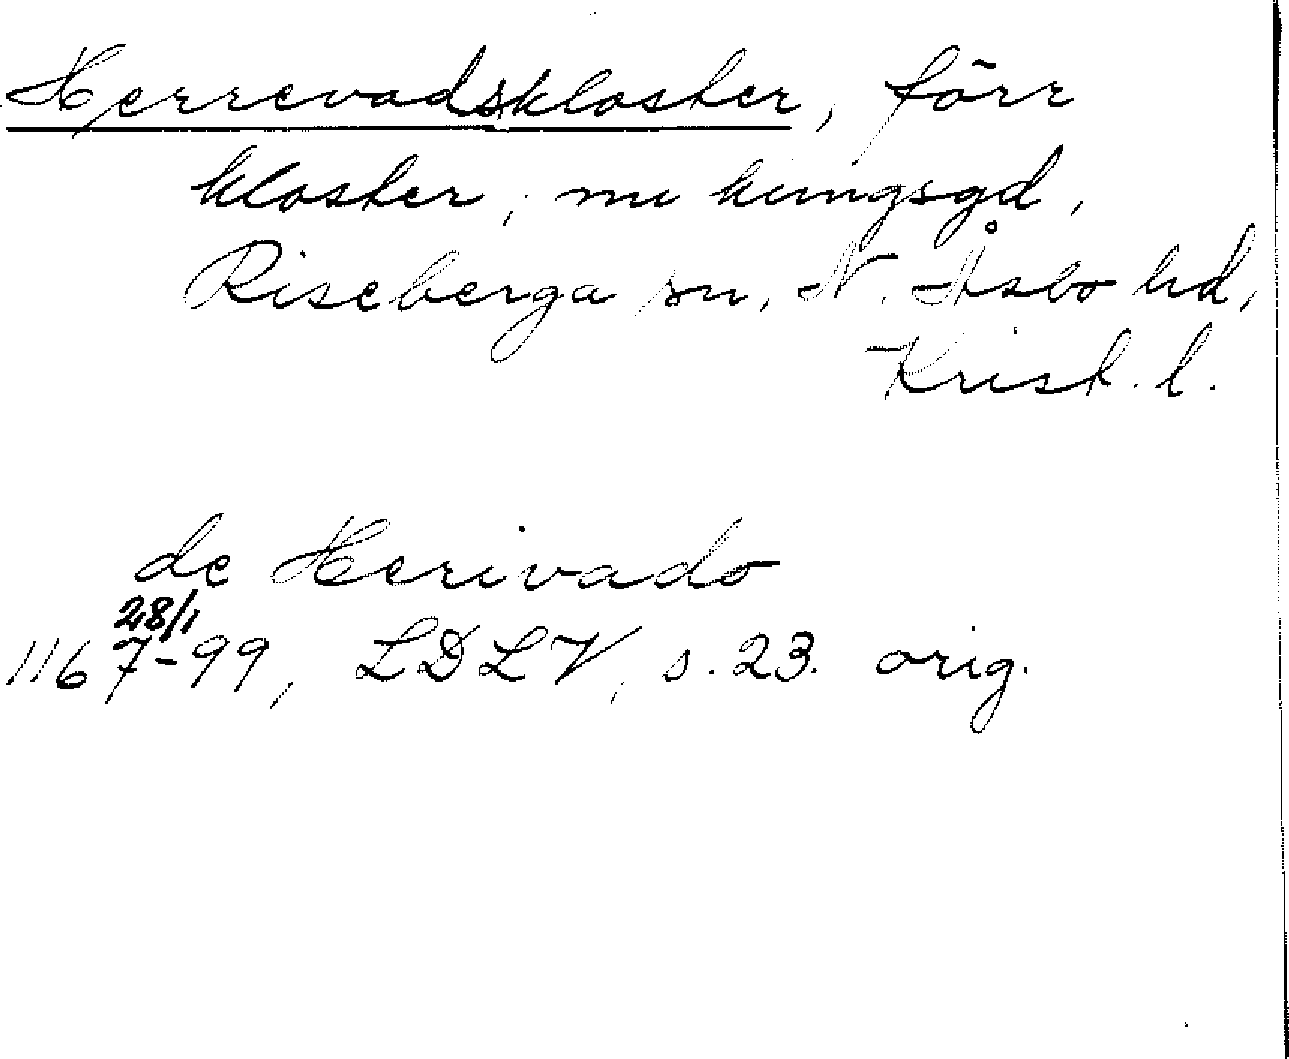 Herrevadskloster, förr
kloster, nu kungsgd,
Riseberga sn, N. Åsbo hd,
Krist. l.
de Herivado
28/1
1167-99, LDLV, s. 23. orig.